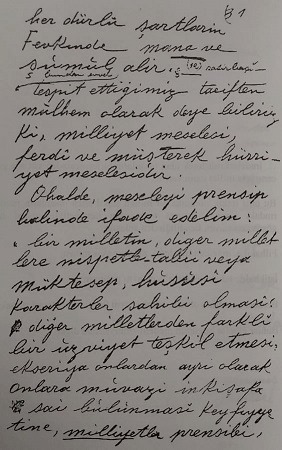 31
her dürlü şartların
Fevkinde mana ve
şümûl alır.
tespit ettiğimiz tariften
mülhem olarak deye biliriz
Ki, milliyet meselesi,
ferdî ve müşterek hürri-
yet meselesidir.
Ohalde, meseleyi prensip
halinde ifade edelim:
"bir milletin, diğer millet-
lere nispetle tabiî veya
müktesep, hûsûsî
Karakterler sahibi olması,
diğer milletlerden farklı
bir uzviyet teşkil etmesi,
ekseriya onlardan ayrı olarak
onlara müvazi inkişafa
sai bûlûnması keyfiyye
tine, milliyetler prensibi,